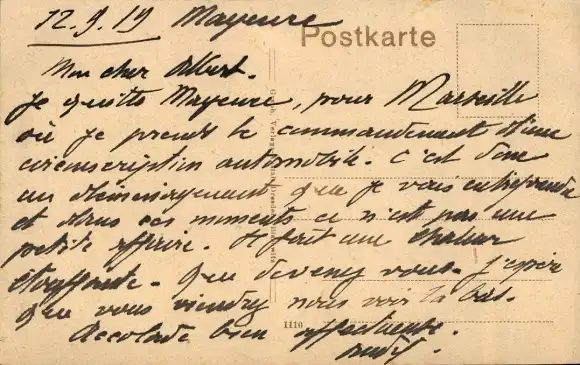 12.9.19 Mayence
Postkarte
Mon cher Albert.
Je quitte Mayence, pour Marseille
où je prends le commandement d'une
circonscription automobile. C'est donc
un déménagement que je vais entreprendre
et dans ces moments ce n'est pas une
petite affaire. Il fait une chaleur
étouffante. Que devenez vous. J'espère
que vous viendrez nous voir là bas.
Accolade bien affectueuse.
1110